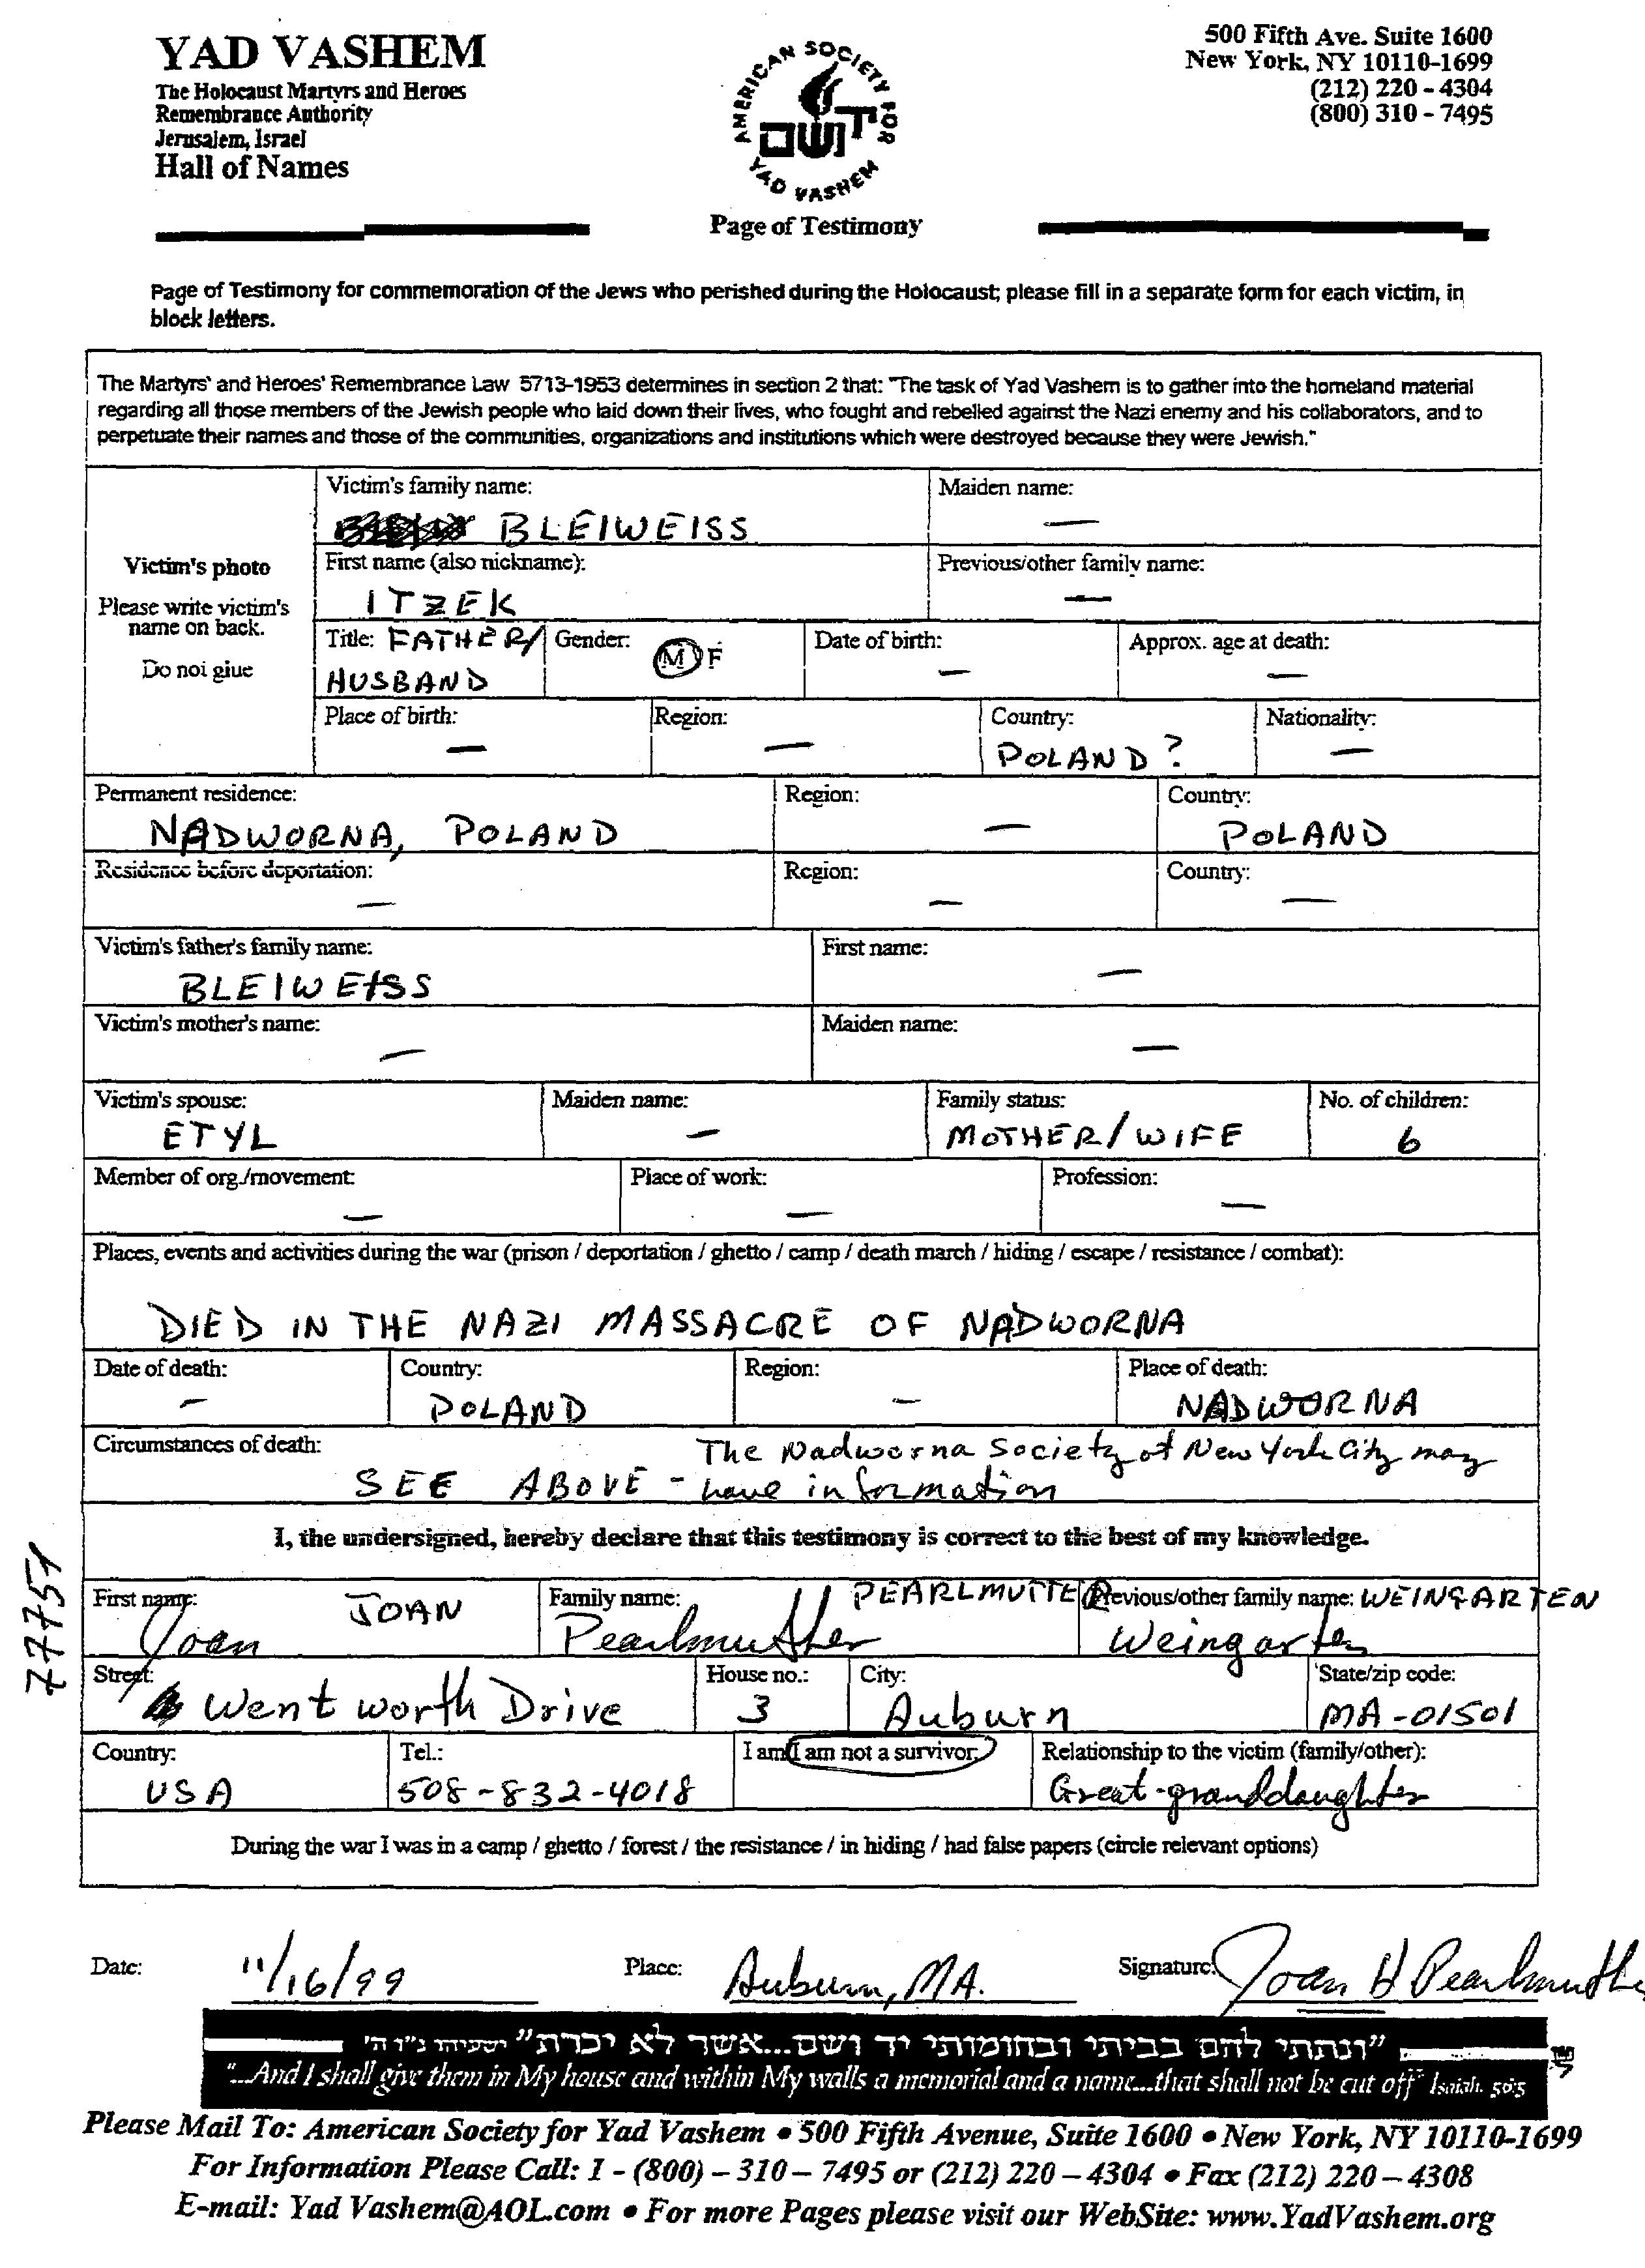 YAD VASHEM
The Holocaust Martyrs and Heroes
Remembrance Authority
Jerusalem, Israel
Hall of Names
AMERICAN SOCIETY FOR
יד ושם
YAD VASHEM
Page of Testimony
500 Fifth Ave. Suite 1600
New York, NY 10110-1699
(212) 220 - 4304
(800) 310 - 7495
Page of Testimony for commemoration of the Jews who perished during the Holocaust; please fill in a separate form for each victim, in
block letters.
The Martyrs' and Heroes' Remembrance Law 5713-1953 determines in section 2 that: "The task of Yad Vashem is to gather into the homeland material
regarding all those members of the Jewish people who laid down their lives, who fought and rebelled against the Nazi enemy and his collaborators, and to
perpetuate their names and those of the communities, organizations and institutions which were destroyed because they were Jewish."
Victim's photo
Please write victim's
name on back.
Do not glue
Victim's family name: Maiden name:
BLEIWEISS —
First name (also nickname): Previous/other family name:
ITZEK —
Title: FATHER/ Gender: M F Date of birth: Approx. age at death:
HUSBAND — —
Place of birth: Region: Country: Nationality:
— — POLAND ? —
Permanent residence: Region: Country:
NADWORNA, POLAND — POLAND
Residence before deportation: Region: Country:
— — —
Victim's father's family name: First name:
BLEIWEISS —
Victim's mother's name: Maiden name:
— —
Victim's spouse: Maiden name: Family status: No. of children:
ETYL — MOTHER/WIFE 6
Member of org./movement: Place of work: Profession:
— — —
Places, events and activities during the war (prison / deportation / ghetto / camp / death march / hiding / escape / resistance / combat):
DIED IN THE NAZI MASSACRE OF NADWORNA
Date of death: Country: Region: Place of death:
— POLAND — NADWORNA
Circumstances of death: The Nadworna Society of New York City may
SEE ABOVE - have information
I, the undersigned, hereby declare that this testimony is correct to the best of my knowledge.
77751
First name: JOAN Family name: PEARLMUTTER Previous/other family name: WEINGARTEN
Joan Pearlmutter Weingarten
Street: House no.: City: State/zip code:
Wentworth Drive 3 Auburn MA-01501
Country: Tel.: I am/I am not a survivor. Relationship to the victim (family/other):
USA 508-832-4018 Great-granddaughter
During the war I was in a camp / ghetto / forest / the resistance / in hiding / had false papers (circle relevant options)
Date: 11/16/99 Place: Auburn, MA. Signature: Joan H Pearlmutte
"ונתתי להם בביתי ובחומותי יד ושם...אשר לא יכרת" ישעיהו נ"ו ה'
"...And I shall give them in My house and within My walls a memorial and a name...that shall not be cut off" Isaiah. 56:5
Please Mail To: American Society for Yad Vashem • 500 Fifth Avenue, Suite 1600 • New York, NY 10110-1699
For Information Please Call: 1 - (800) – 310 – 7495 or (212) 220 – 4304 • Fax (212) 220 – 4308
E-mail: Yad Vashem@AOL.com • For more Pages please visit our WebSite: www.YadVashem.org